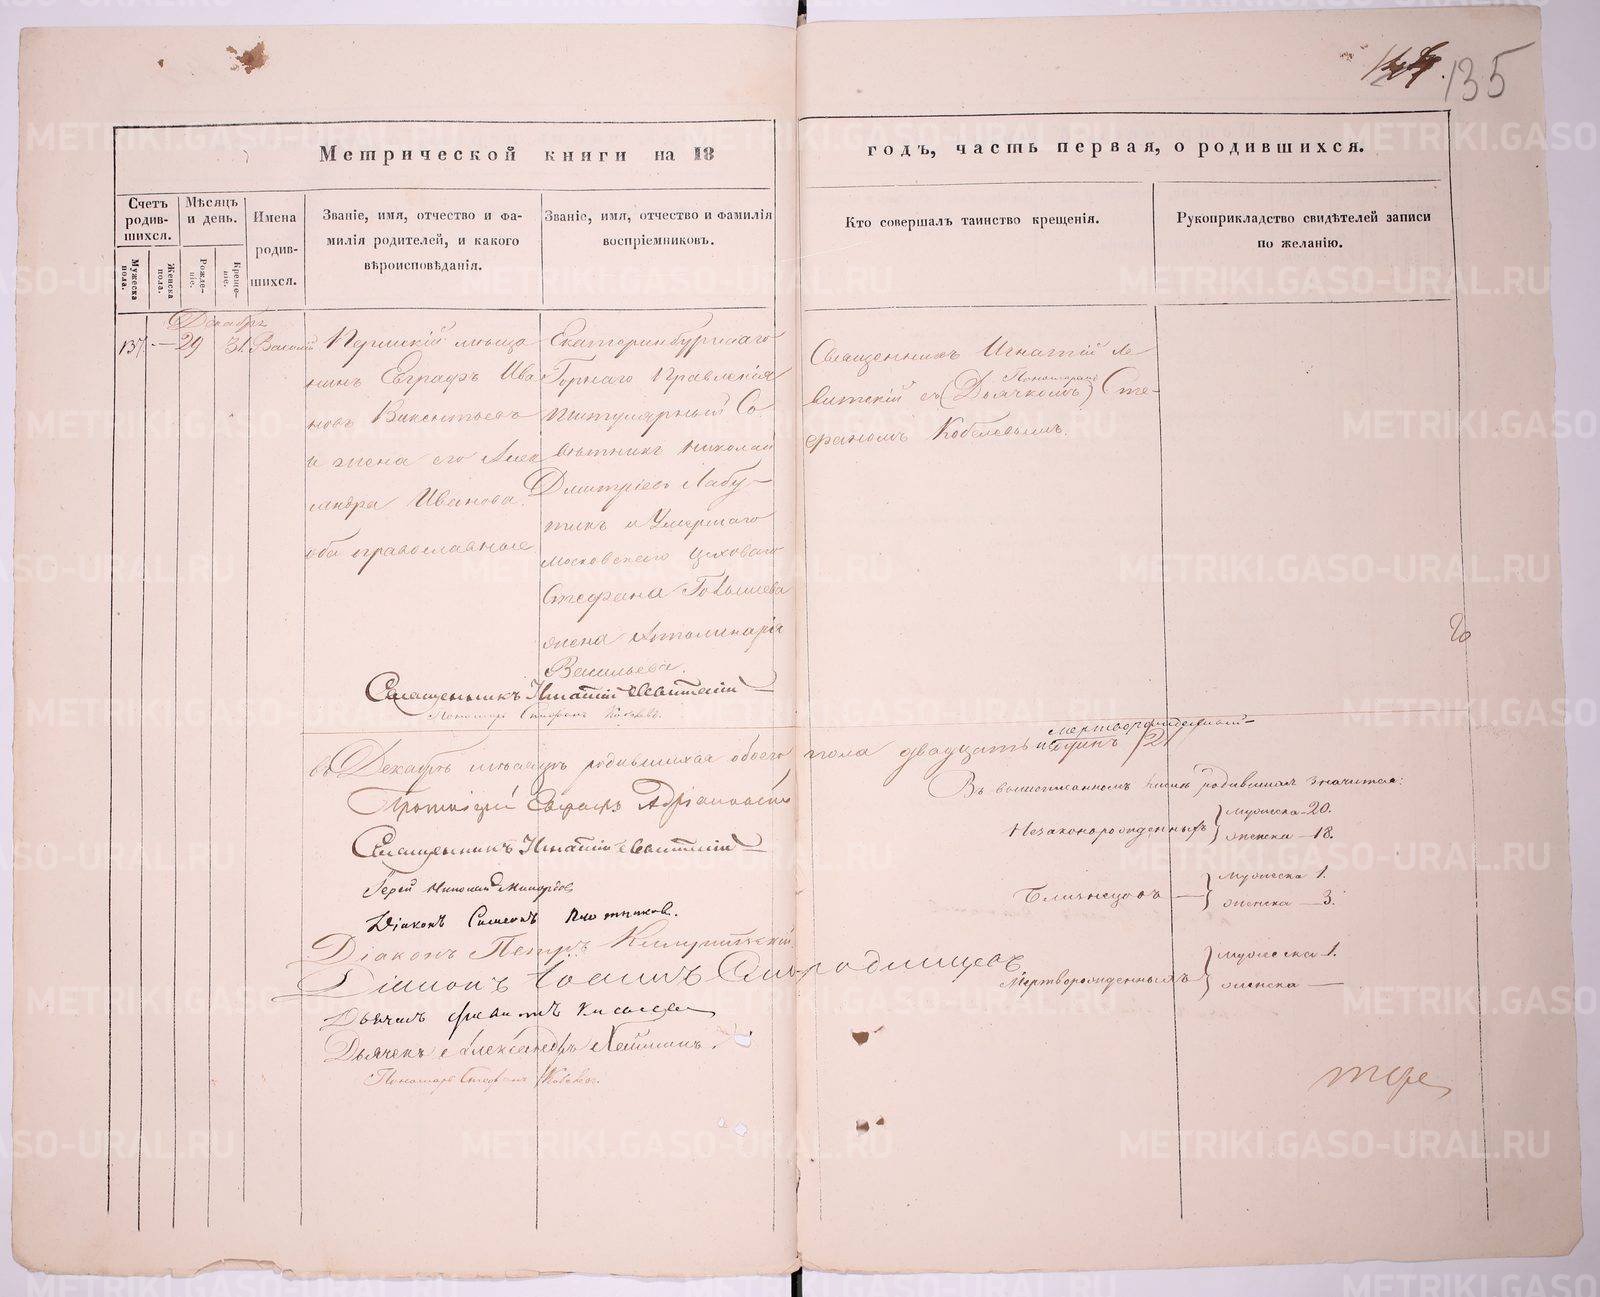 135
Метрической книги на 18 годъ, часть первая, о родившихся.
Счетъ родив-шихся.
Мѣсяцъ и день.
Имена родив-шихся.
Званіе, имя, отчество и фа-
милія родителей, и какого
вѣроисповѣданія.
Званіе, имя, отчество и фамилія
воспріемниковъ.
Кто совершалъ таинство крещенія.
Рукоприкладство свидѣтелей записи
по желанію.
Мужеска пола.
Женска пола.
Рожде-ніе.
Креще-ніе.
Декабрь
137. — 29 31. Василій
Пермскій мѣща
нинъ Евграфъ Ива
новъ Викентьевъ
и жена его Алек
сандра Иванова.
оба православные
Екатеринбургскаго
Горнаго Правленія
Титулярный Со
вѣтникъ Николай
Дмитріевъ Лабу-
тинъ и Умершаго
московскаго цеховаго
Стефана
жена Апполинарія
Васильева.
Священникъ Игнатій Ле
витскій съ (Дьячкомъ) Сте-
Пономаремъ
фаномъ Кобелевымъ.
Священникъ Игнатій Левитскій
Пономарь Стефанъ Кобелевъ.
мертворожденный
въ Декабрѣ мѣсяцѣ родившихся обоего пола двадцать одинъ /21
Протоіерей Евграфъ
Священникъ Игнатій Левитскій
Іерей Николай
Діаконъ Симеонъ Плотниковъ.
Діаконъ Петръ
Діаконъ Іоаннъ Смородинцевъ
Дьячекъ
Дьячекъ Александръ
Пономарь Стефанъ Кобелевъ.
Въ вышеписанномъ числѣ родившихся значится:
Незаконорожденныхъ
мужеска — 20.
женска — 18.
Близнецовъ —
мужеска 1.
женска — 3.
Мертворожденныхъ
мужеска 1.
женска —
METRIKI.GASO-URAL.RU